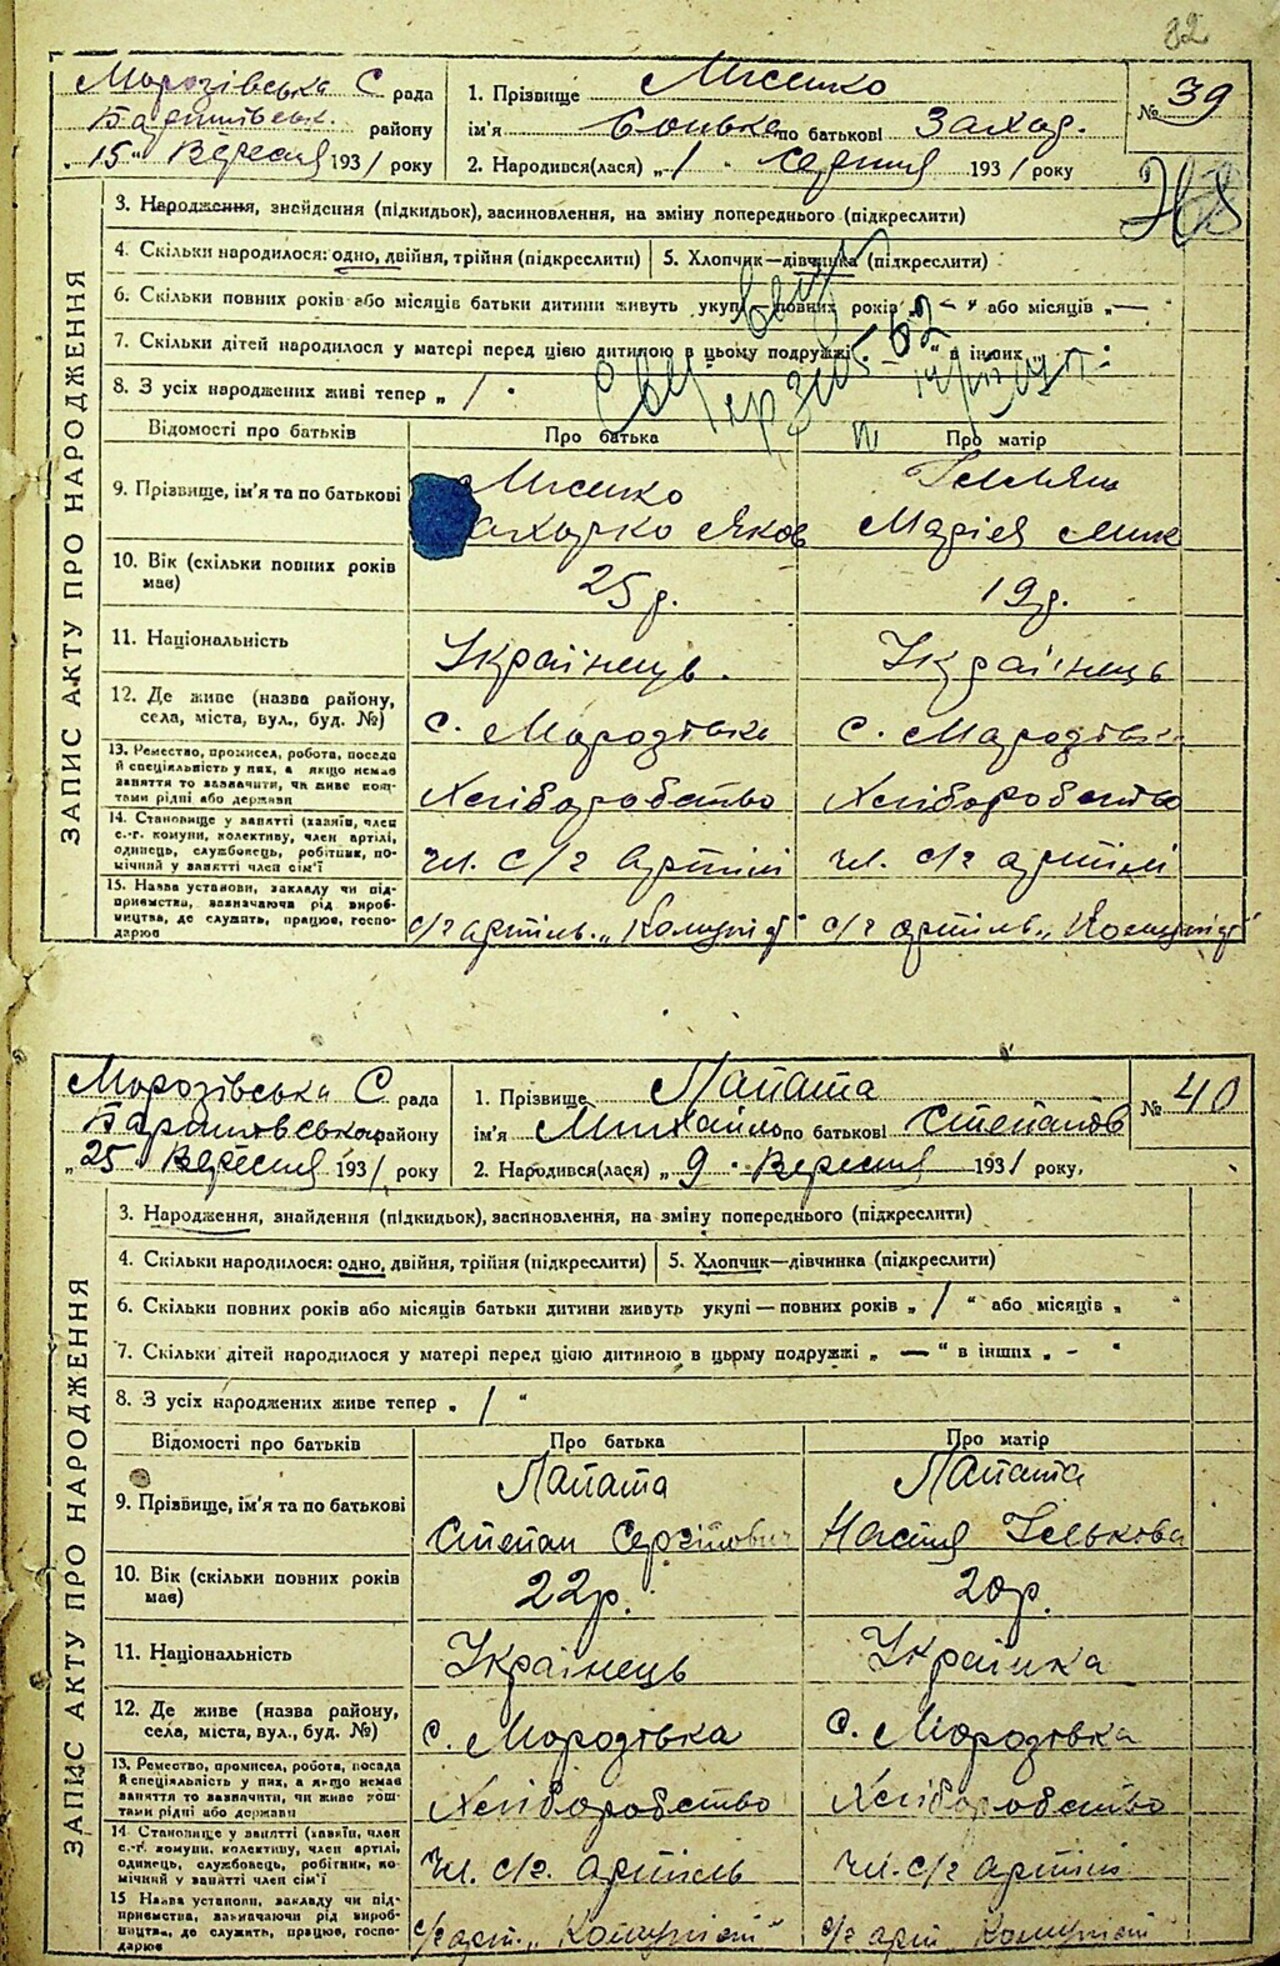 82
Морозівська С рада
Баришівськ. району
„15“ Вересня 1931 року
1. Прізвище Мисенко
ім'я по батькові Захар.
2. Народився(лася) „1“ серпня 1931 року
№ 39
ЗАПИС АКТУ ПРО НАРОДЖЕННЯ
3. Народження, знайдення (підкидьок), засиновлення, на зміну попереднього (підкреслити)
4. Скільки народилося: одно, двійня, трійня (підкреслити)
5. Хлопчик—дівчинка (підкреслити)
6. Скільки повних років або місяців батьки дитини живуть укупі—повних років або місяців „—
7. Скільки дітей народилося у матері перед цією дитиною в цьому подружжі в інших
8. З усіх народжених живі тепер „ 1 “
Відомості про батьків
Про батька
Про матір
9. Прізвище, ім'я та по батькові
Мисенко
ахарко Яков
Марія Мик
10. Вік (скільки повних років має)
25 р.
19 р.
11. Національність
Українець.
Українець
12. Де живе (назва району, села, міста, вул., буд. №)
с. Морозівка
с. Морозівка
13. Ремество, промисел, робота, посада й спеціяльність у них, а якщо немає заняття то зазначити, чи живе коштами рідні або держави
Хліборобство
Хліборобство
14. Становище у занятті (хазяїн, член с.-г. комуни, колективу, член артілі, одинець, службовець, робітник, помічний у занятті член сім'ї
чл. с/г артілі
чл. с/г артілі
15. Назва установи, закладу чи підприємства, зазначаючи рід виробництва, де служить, працює, господарює
с/г артіль „Комуніст“
с/г артіль „Комуніст“
Морозівська С рада
Баришівська району
„25“ Вересня 1931 року
1. Прізвище Лапата
ім'я Михайло по батькові Степанов
2. Народився(лася) „9“ Вересня 1931 року.
№ 40
ЗАПИС АКТУ ПРО НАРОДЖЕННЯ
3. Народження, знайдення (підкидьок), засиновлення, на зміну попереднього (підкреслити)
4. Скільки народилося: одно, двійня, трійня (підкреслити)
5. Хлопчик—дівчинка (підкреслити)
6. Скільки повних років або місяців батьки дитини живуть укупі — повних років „ 1 “ або місяців „ “
7. Скільки дітей народилося у матері перед цією дитиною в цьому подружжі „ — “ в інших „ - “
8. З усіх народжених живе тепер „ 1 “
Відомості про батьків
Про батька
Про матір
9. Прізвище, ім'я та по батькові
Лапата
Степан Сергійович
Лапата
Настя Ількова
10. Вік (скільки повних років має)
22р.
20р.
11. Національність
Українець
Українка
12. Де живе (назва району, села, міста, вул., буд. №)
с. Морозівка
с. Морозівка
13. Ремество, промисел, робота, посада й спеціяльність у них, а якщо немає заняття то зазначити, чи живе коштами рідні або держави
Хліборобство
Хліборобство
14. Становище у занятті (хазяїн, член с.-г. комуни, колективу, член артілі, одинець, службовець, робітник, помічний у занятті член сім'ї
Чл. с/г. артіль
чл. с/г артілі
15 Назва установи, закладу чи підприємства, зазначаючи рід виробництва, де служить, працює, господарює
с/г арт. „Комуніст“
с/г арт „Комуніст“